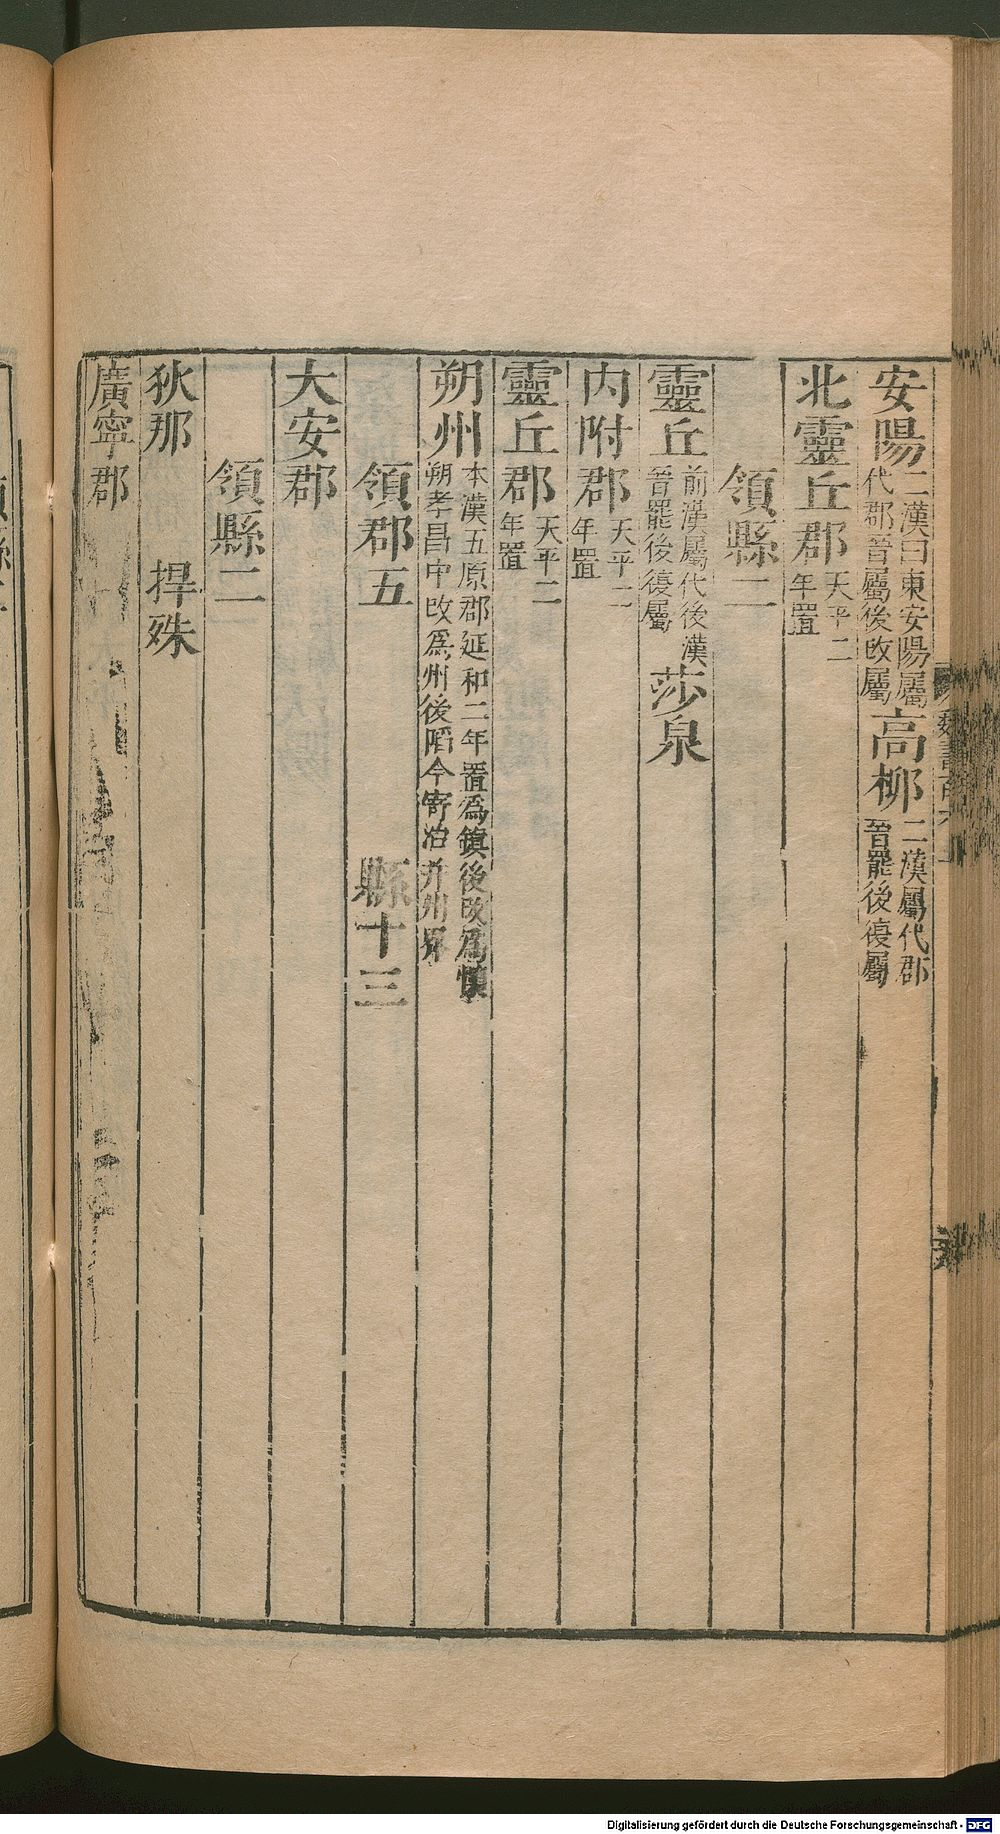 安陽二漢曰東安陽屬代郡晉屬後改屬高柳二漢屬代郡晉罷後復屬
北靈丘郡天平二年置
領縣二
靈丘前漢屬代後漢晉罷後復屬莎泉
内附郡天平二年置
靈丘郡天平二年置
朔州本漢五原郡延和二年置爲鎮後改爲懷朔孝昌中改爲州後陷今寄治并州界
領郡五 縣十三
大安郡
領縣二
狄那 捍殊
廣寧郡
Digitalisierung gefördert durch die Deutsche Forschungsgemeinschaft - DFG